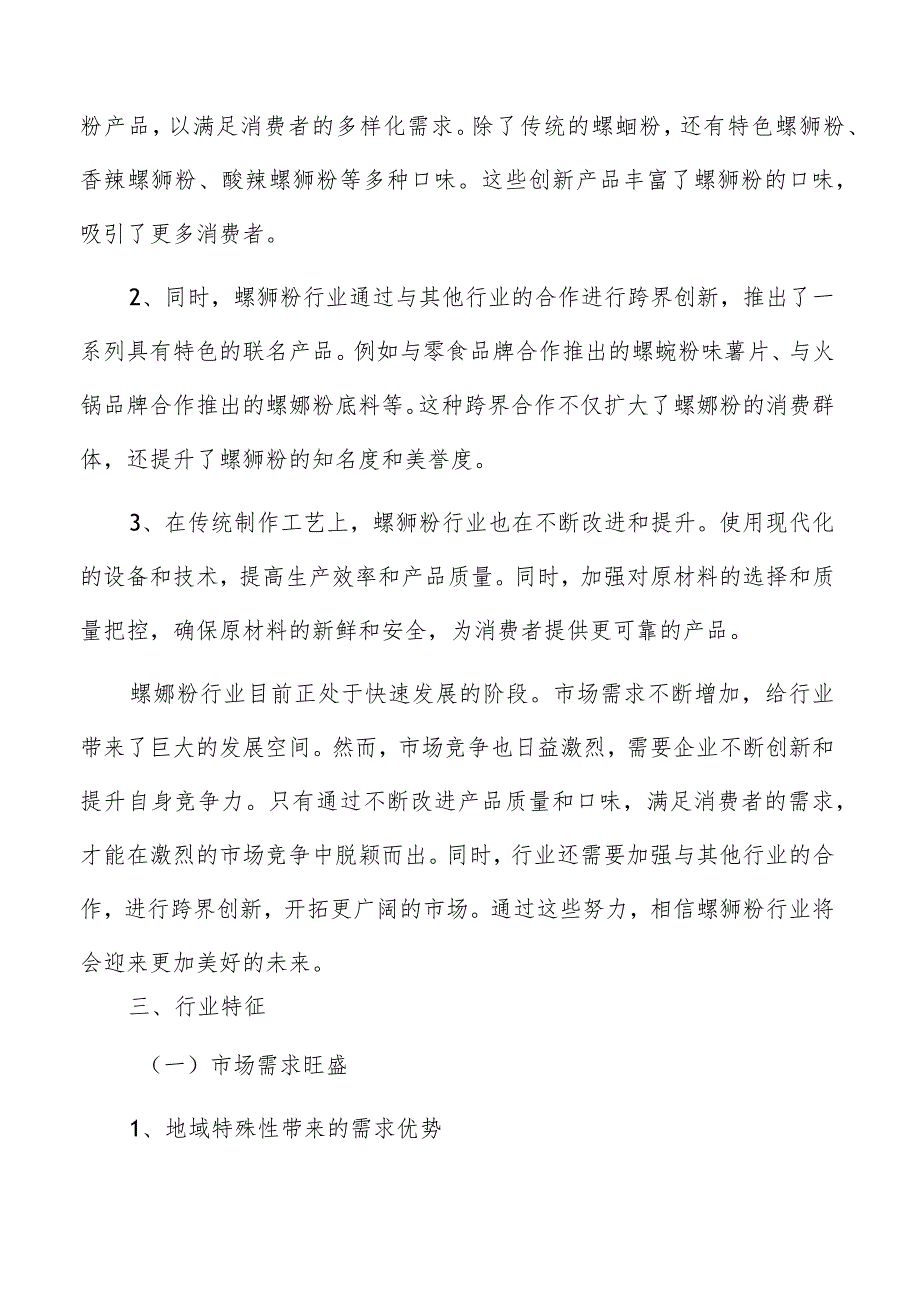 粉产品，以满足消费者的多样化需求。除了传统的螺蛔粉，还有特色螺狮粉、
香辣螺狮粉、酸辣螺狮粉等多种口味。这些创新产品丰富了螺狮粉的口味，
吸引了更多消费者。
2、同时，螺狮粉行业通过与其他行业的合作进行跨界创新，推出了一
系列具有特色的联名产品。例如与零食品牌合作推出的螺蜿粉味薯片、与火
锅品牌合作推出的螺娜粉底料等。这种跨界合作不仅扩大了螺娜粉的消费群
体，还提升了螺狮粉的知名度和美誉度。
3、在传统制作工艺上，螺狮粉行业也在不断改进和提升。使用现代化
的设备和技术，提高生产效率和产品质量。同时，加强对原材料的选择和质
量把控，确保原材料的新鲜和安全，为消费者提供更可靠的产品。
螺娜粉行业目前正处于快速发展的阶段。市场需求不断增加，给行业
带来了巨大的发展空间。然而，市场竞争也日益激烈，需要企业不断创新和
提升自身竞争力。只有通过不断改进产品质量和口味，满足消费者的需求，
才能在激烈的市场竞争中脱颖而出。同时，行业还需要加强与其他行业的合
作，进行跨界创新，开拓更广阔的市场。通过这些努力，相信螺狮粉行业将
会迎来更加美好的未来。
三、行业特征
（一）市场需求旺盛
1、地域特殊性带来的需求优势